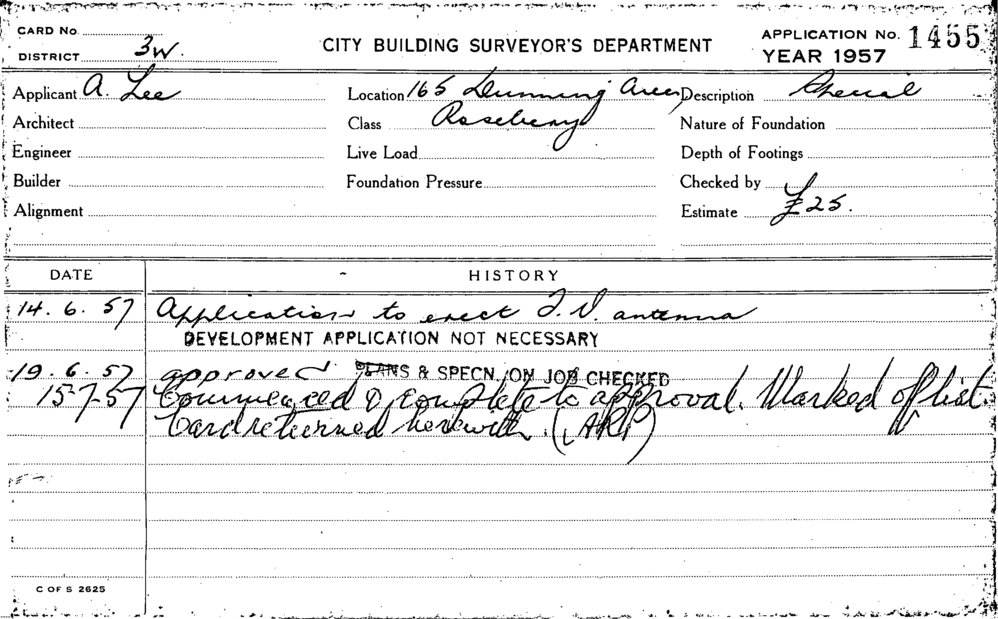 CARD No.
DISTRICT 3W.
CITY BUILDING SURVEYOR'S DEPARTMENT
APPLICATION No. 1455
YEAR 1957
Applicant A. Lee
Location 165 Dunning Avee,
Description Aerial
Architect
Class Rosebery
Nature of Foundation
Engineer
Live Load
Depth of Footings
Builder
Foundation Pressure
Checked by
Alignment
Estimate £25.
DATE
HISTORY
14.6.57 Application to erect T.V. antenna
DEVELOPMENT APPLICATION NOT NECESSARY
19.6.57 approved PLANS & SPECN. ON JOB CHECKED
15-7-57 Commenced & complete to approval. Marked off list.
Card returned herewith.
C OF S 2625